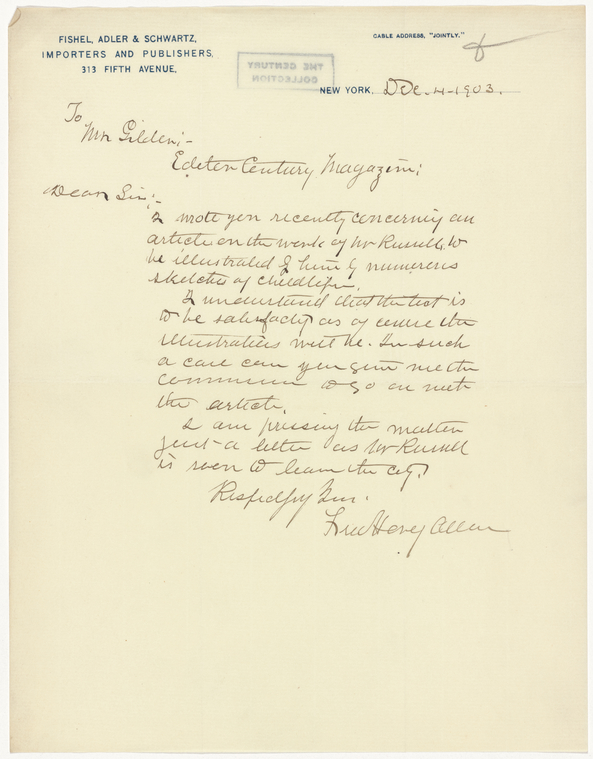 FISHEL, ADLER & SCHWARTZ,
IMPORTERS AND PUBLISHERS,
313 FIFTH AVENUE,
CABLE ADDRESS, "JOINTLY."
8
THE CENTURY
COLLECTION
NEW YORK, Dec. 4-1903.
To
Mr Gilder;-
Editor Century Magazine;
Dear Sir;-
I wrote you recently concerning an
article on the work of Mr Russell, to
be illustrated by him by numerous
sketches of childlife.
I understand that the text is
to be satisfactory as of course the
illustrations will be. In such
a case can you give me the
commission to go on with
the article.
I am pressing the matter
just a little as Mr Russell
is soon to leave the city.
Respectfully Yours.
Fred Hovey Allen